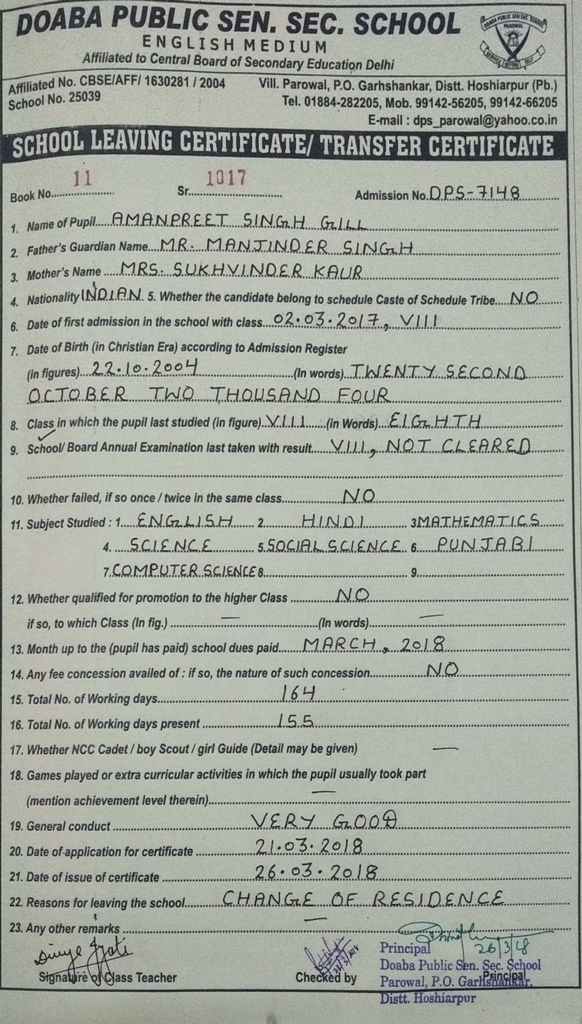 DOABA PUBLIC SEN. SEC. SCHOOL
ENGLISH MEDIUM
Affiliated to Central Board of Secondary Education Delhi
DOABA PUBLIC SEN. SEC. SCHOOL
PAROWAL
Affiliated No. CBSE/AFF/ 1630281 / 2004
School No. 25039
Vill. Parowal, P.O. Garhshankar, Distt. Hoshiarpur (Pb.)
Tel. 01884-282205, Mob. 99142-56205, 99142-66205
E-mail : dps_parowal@yahoo.co.in
SCHOOL LEAVING CERTIFICATE/ TRANSFER CERTIFICATE
Book No. 11 Sr. 1017 Admission No. DPS-7148
1. Name of Pupil AMANPREET SINGH GILL
2. Father's Guardian Name MR. MANJINDER SINGH
3. Mother's Name MRS. SUKHVINDER KAUR
4. Nationality INDIAN 5. Whether the candidate belong to schedule Caste of Schedule Tribe NO
6. Date of first admission in the school with class 02.03.2017, VIII
7. Date of Birth (in Christian Era) according to Admission Register
(in figures) 22.10.2004 (In words) TWENTY SECOND
OCTOBER TWO THOUSAND FOUR
8. Class in which the pupil last studied (in figure) VIII (in Words) EIGHTH
9. School/ Board Annual Examination last taken with result VIII, NOT CLEARED
10. Whether failed, if so once / twice in the same class NO
11. Subject Studied : 1 ENGLISH 2 HINDI 3 MATHEMATICS
4. SCIENCE 5. SOCIAL SCIENCE 6 PUNJABI
7. COMPUTER SCIENCE 8 9
12. Whether qualified for promotion to the higher Class NO
if so, to which Class (In fig.) — (In words) —
13. Month up to the (pupil has paid) school dues paid MARCH, 2018
14. Any fee concession availed of : if so, the nature of such concession NO
15. Total No. of Working days 164
16. Total No. of Working days present 155
17. Whether NCC Cadet / boy Scout / girl Guide (Detail may be given) —
18. Games played or extra curricular activities in which the pupil usually took part
(mention achievement level therein) —
19. General conduct VERY GOOD
20. Date of application for certificate 21.03.2018
21. Date of issue of certificate 26.03.2018
22. Reasons for leaving the school CHANGE OF RESIDENCE
23. Any other remarks —
26/3/18
Signature of Class Teacher Checked by Principal
Principal
Doaba Public Sen. Sec. School
Parowal, P.O. Garhshankar,
Distt. Hoshiarpur